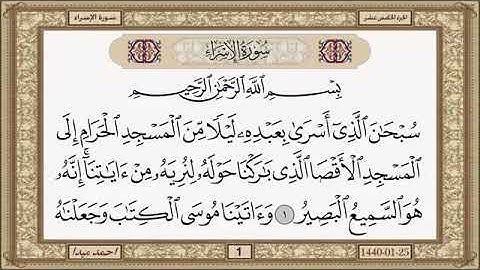 سورة الإسراء
الجزء الخامس عشر
سُورَةُ الإِسْرَاءِ
بِسْمِ اللَّهِ الرَّحْمَٰنِ الرَّحِيمِ
سُبْحَٰنَ الَّذِىٓ أَسْرَىٰ بِعَبْدِهِۦ لَيْلًا مِّنَ الْمَسْجِدِ الْحَرَامِ إِلَى
الْمَسْجِدِ الْأَقْصَا الَّذِى بَٰرَكْنَا حَوْلَهُۥ لِنُرِيَهُۥ مِنْ ءَايَٰتِنَآ ۚ إِنَّهُۥ
هُوَ السَّمِيعُ الْبَصِيرُ ١ وَءَاتَيْنَا مُوسَى الْكِتَٰبَ وَجَعَلْنَٰهُ
احمد عيدا
1
1440-01-25